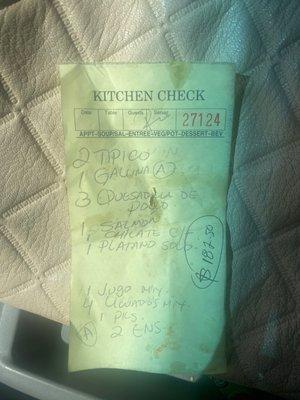 KITCHEN CHECK
Date Table Guests Server
27124
APPT-SOUP/SAL-ENTREE-VEG/POT-DESSERT-BEV
2 TIPICO
1 GALLINA (A)
3 QUESADILLA DE
POLLO
1 SALMON
1 PLATANO SOLO.
$182.50
1 JUGO
4
1 PILS.
(A) 2 ENS.